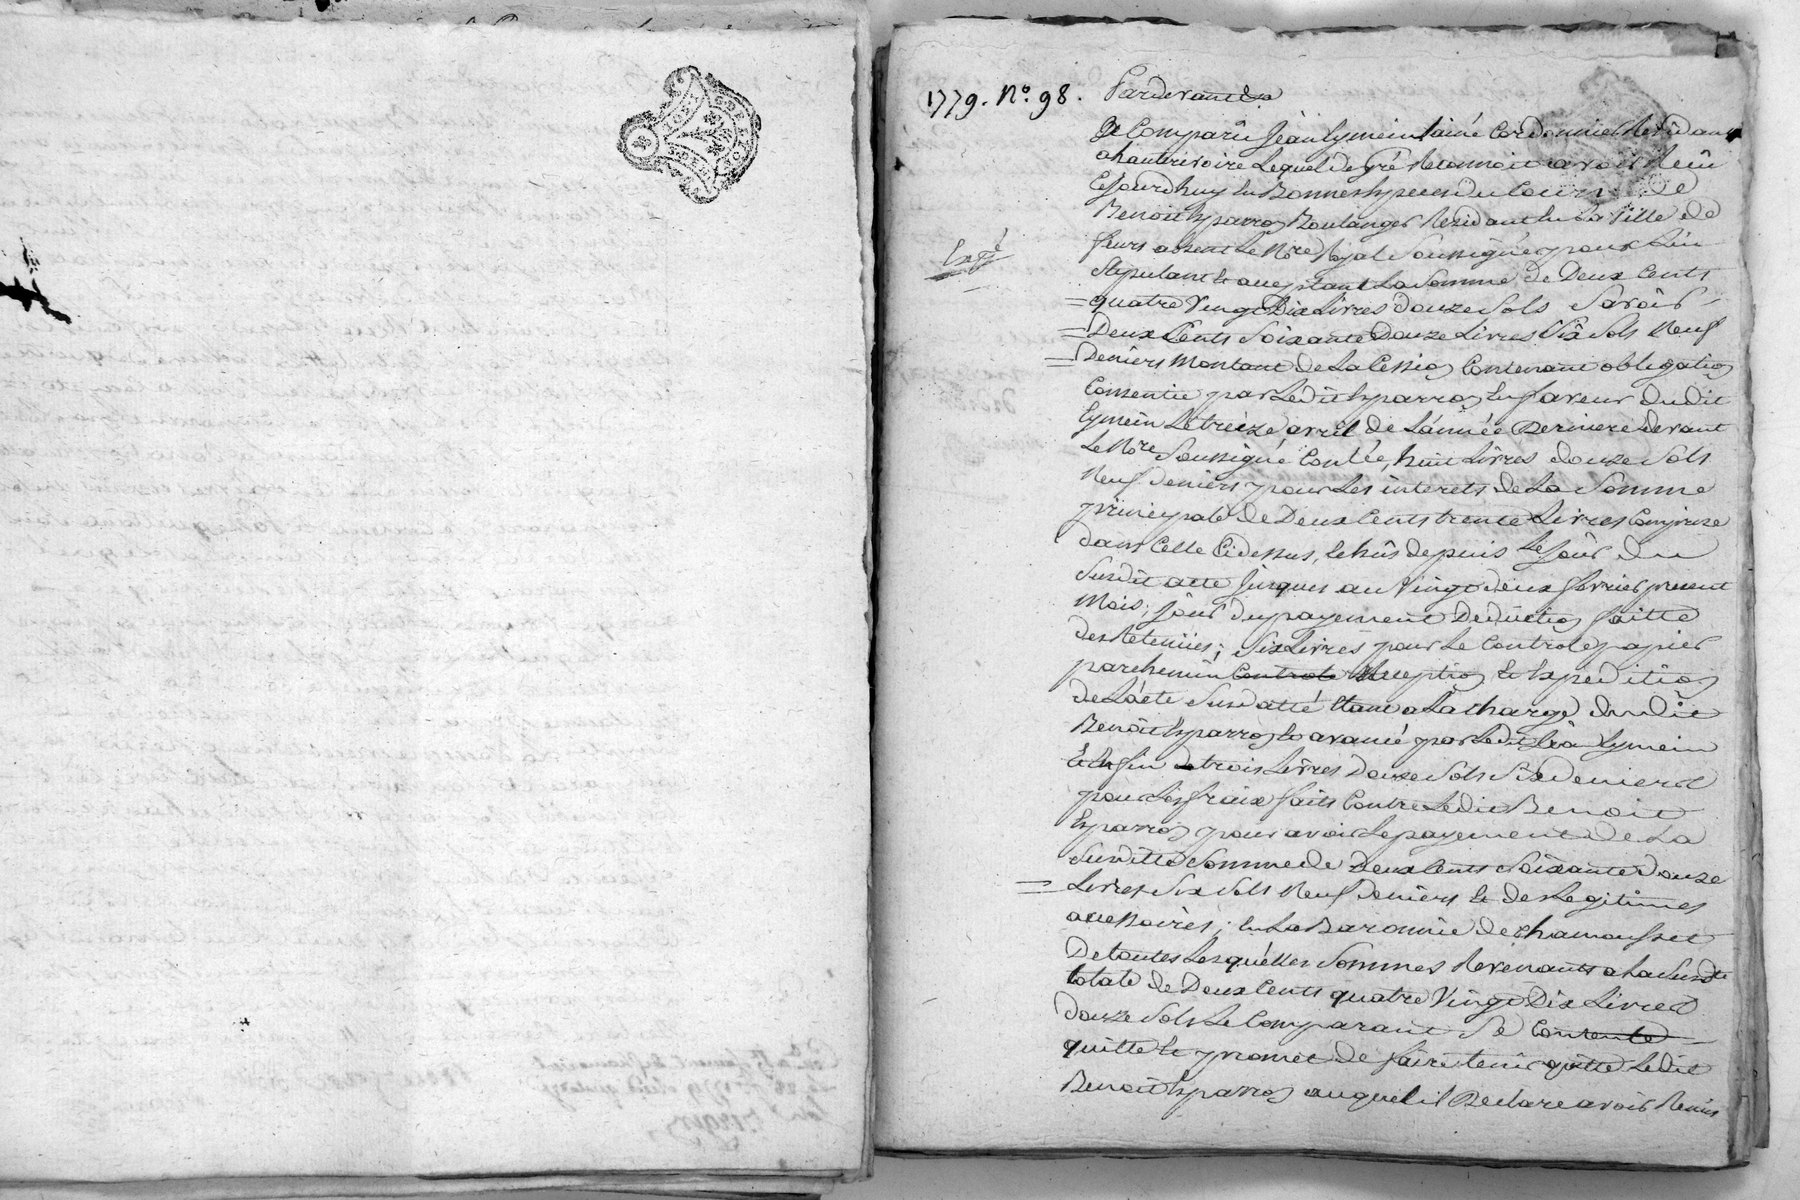 1779. N.o 98.
Pardevant
A Comparû Jean Eymein lainé Cordonnier Residant
a hauterivoire Lequel de Gré Reconnoit avoir Reçû
Cejourdhuy En Bonnes Especes du Cours de
Benoit Esparron Boulanger Residant En La Ville de
feurs absent Le Nore Royal Soussigné pour Lui
Expé
Stipulant & acceptant La Somme de Deux Cents
quatre Vingt Dix Livres Douze Sols Savoir
Deux Cents Soixante Douze Livres Six Sols Neuf
Deniers Montant de La Cession Contenant obligation
Consentie par Ledit Esparron En faveur dudit
Eymein Le treize avril de L'année Derniere devant
Le Nore Soussigné Contlée, huit Livres douze Sols
Neuf Deniers pour Les interets de La Somme
principale de Deux Cents trente Livres Comprise
dans Celle Cidessus, Echûs depuis Le Jour du
Susdit acte Jusques au Vingt deux fevrier present
Mois, Jour du payement Deduction faitte
des Retenües; Six Livres pour Le Controle papier
parchemin Controle Reception & Expedition
de L'acte Susdatté Etant a La Charge dudit
Benoit Esparron & avancé par Ledit Jean Eymein
Et Enfin trois Livres Douze Sols Six deniers
pour Les fraix faits Contre Ledit Benoit
Esparron pour avoir Le payement de La
Susditte Somme de Deux Cents Soixante Douze
Livres Six Sols Neuf Deniers & des Legitimes
accessoires; En La Baronnie de Chamousset
De toutes Lesquelles Sommes Revenants a La Susdte
totale de Deux Cents quatre Vingt Dix Livres
Douze Sols Le Comparant Se Contente
quitte & promet de faire tenir quitte Ledit
Benoit Esparron auquel il Declare avoir Remis